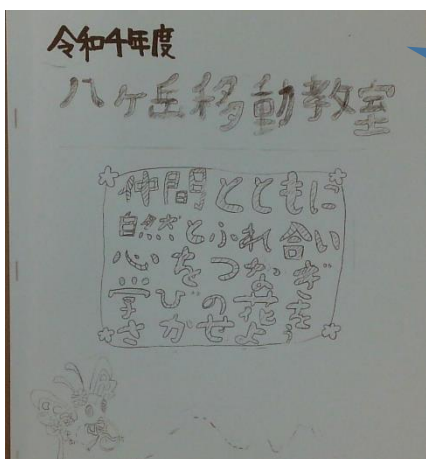 令和4年度
八ヶ岳移動教室
仲間とともに
自然とふれ合い
心をつなぎ
学びの花を
さかせよう